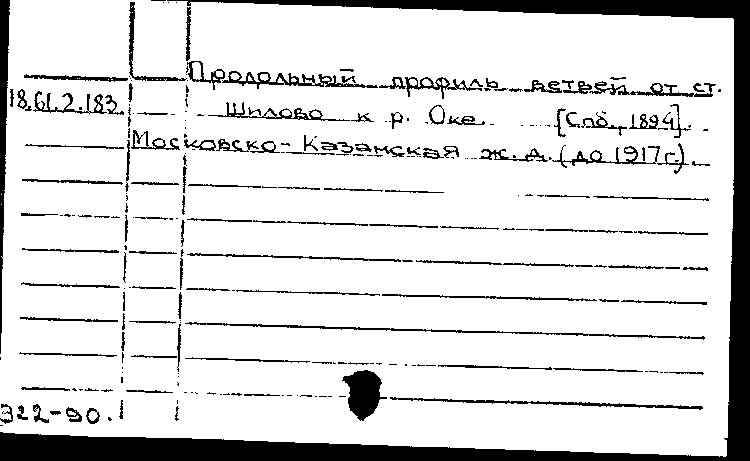 Продольный профиль ветвей от ст.
18.61.2.183. Шилово к р. Оке. [Спб., 1894].
Московско-Казанская ж. д. (до 1917 г.).
322-90.